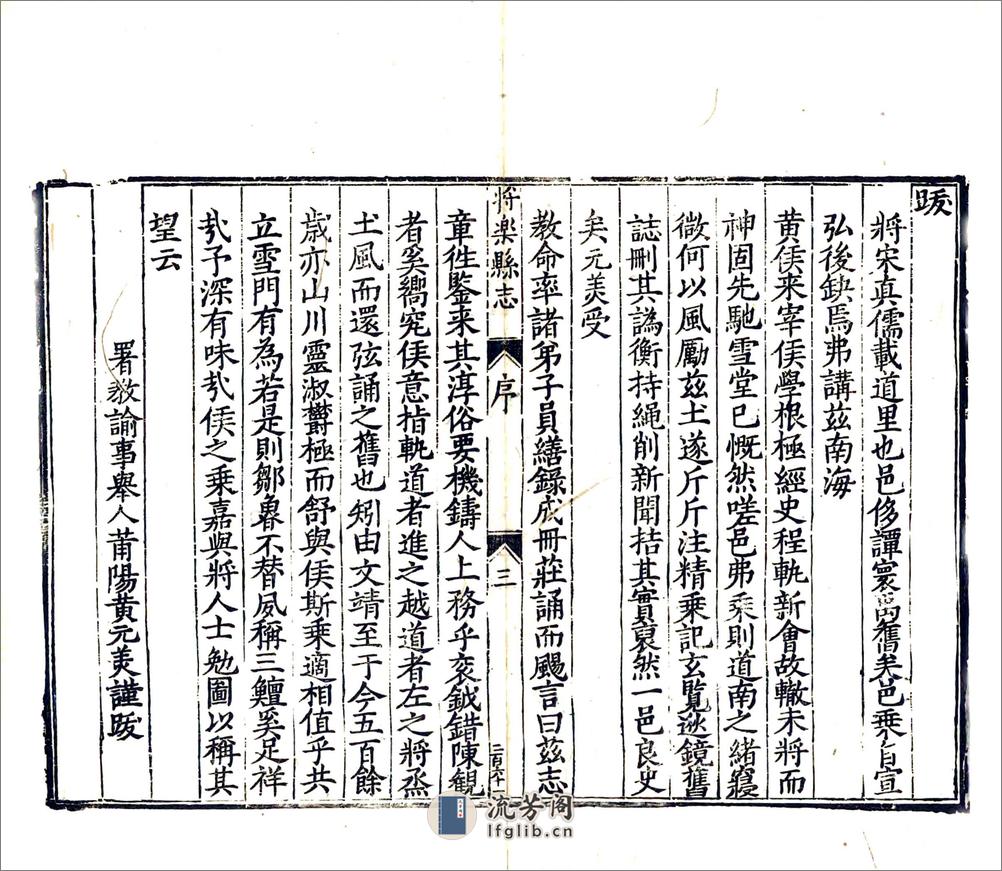 跋
將宋真儒載道里也邑侈譚寰寓舊矣邑乗自宣
弘後缺焉弗講兹南海
黄侯来宰侯學根極經史程軌新會故轍未將而
神固先馳雪堂已慨然嗟邑弗乘則道南之緒寝
微何以風勵兹𡈽遂斤斤注精乘記玄覧逖鏡舊
誌刪其譌衡持繩削新聞拮其實裒然一邑良史
矣元美受
教命率諸弟子員繕錄成冊莊誦而颺言曰兹志
章徃鑒来其淳俗要機鑄人上務乎衮鉞錯陳觀
者奚嚮究侯意指軌道者進之越道者左之將烝
𡈽風而還弦誦之舊也矧由文靖至于今五百餘
歳亦山川靈淑欝極而舒與侯斯乘適相值乎共
立雪門有為若是則鄒魯不替夙稱三鱣奚足祥
㢤予深有味㢤侯之乘嘉與將人士勉圖以稱其
望云
署教諭事舉人莆陽黄元美謹跋
將樂縣志
序
三
二百六十一
流芳阁
lfglib.cn